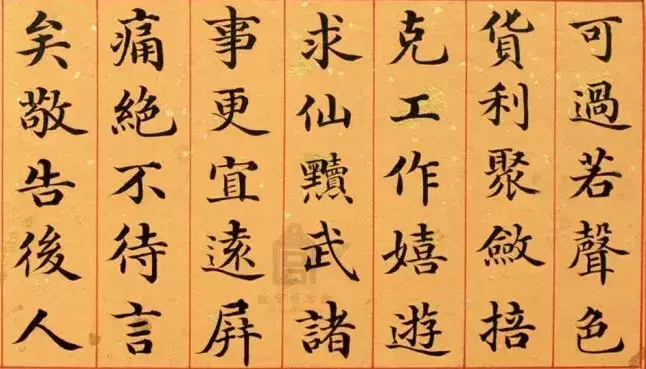 可過若聲色
貨利聚斂掊
克工作嬉遊
求仙黷武諸
事更宜遠屏
痛絶不待言
矣敬告後人